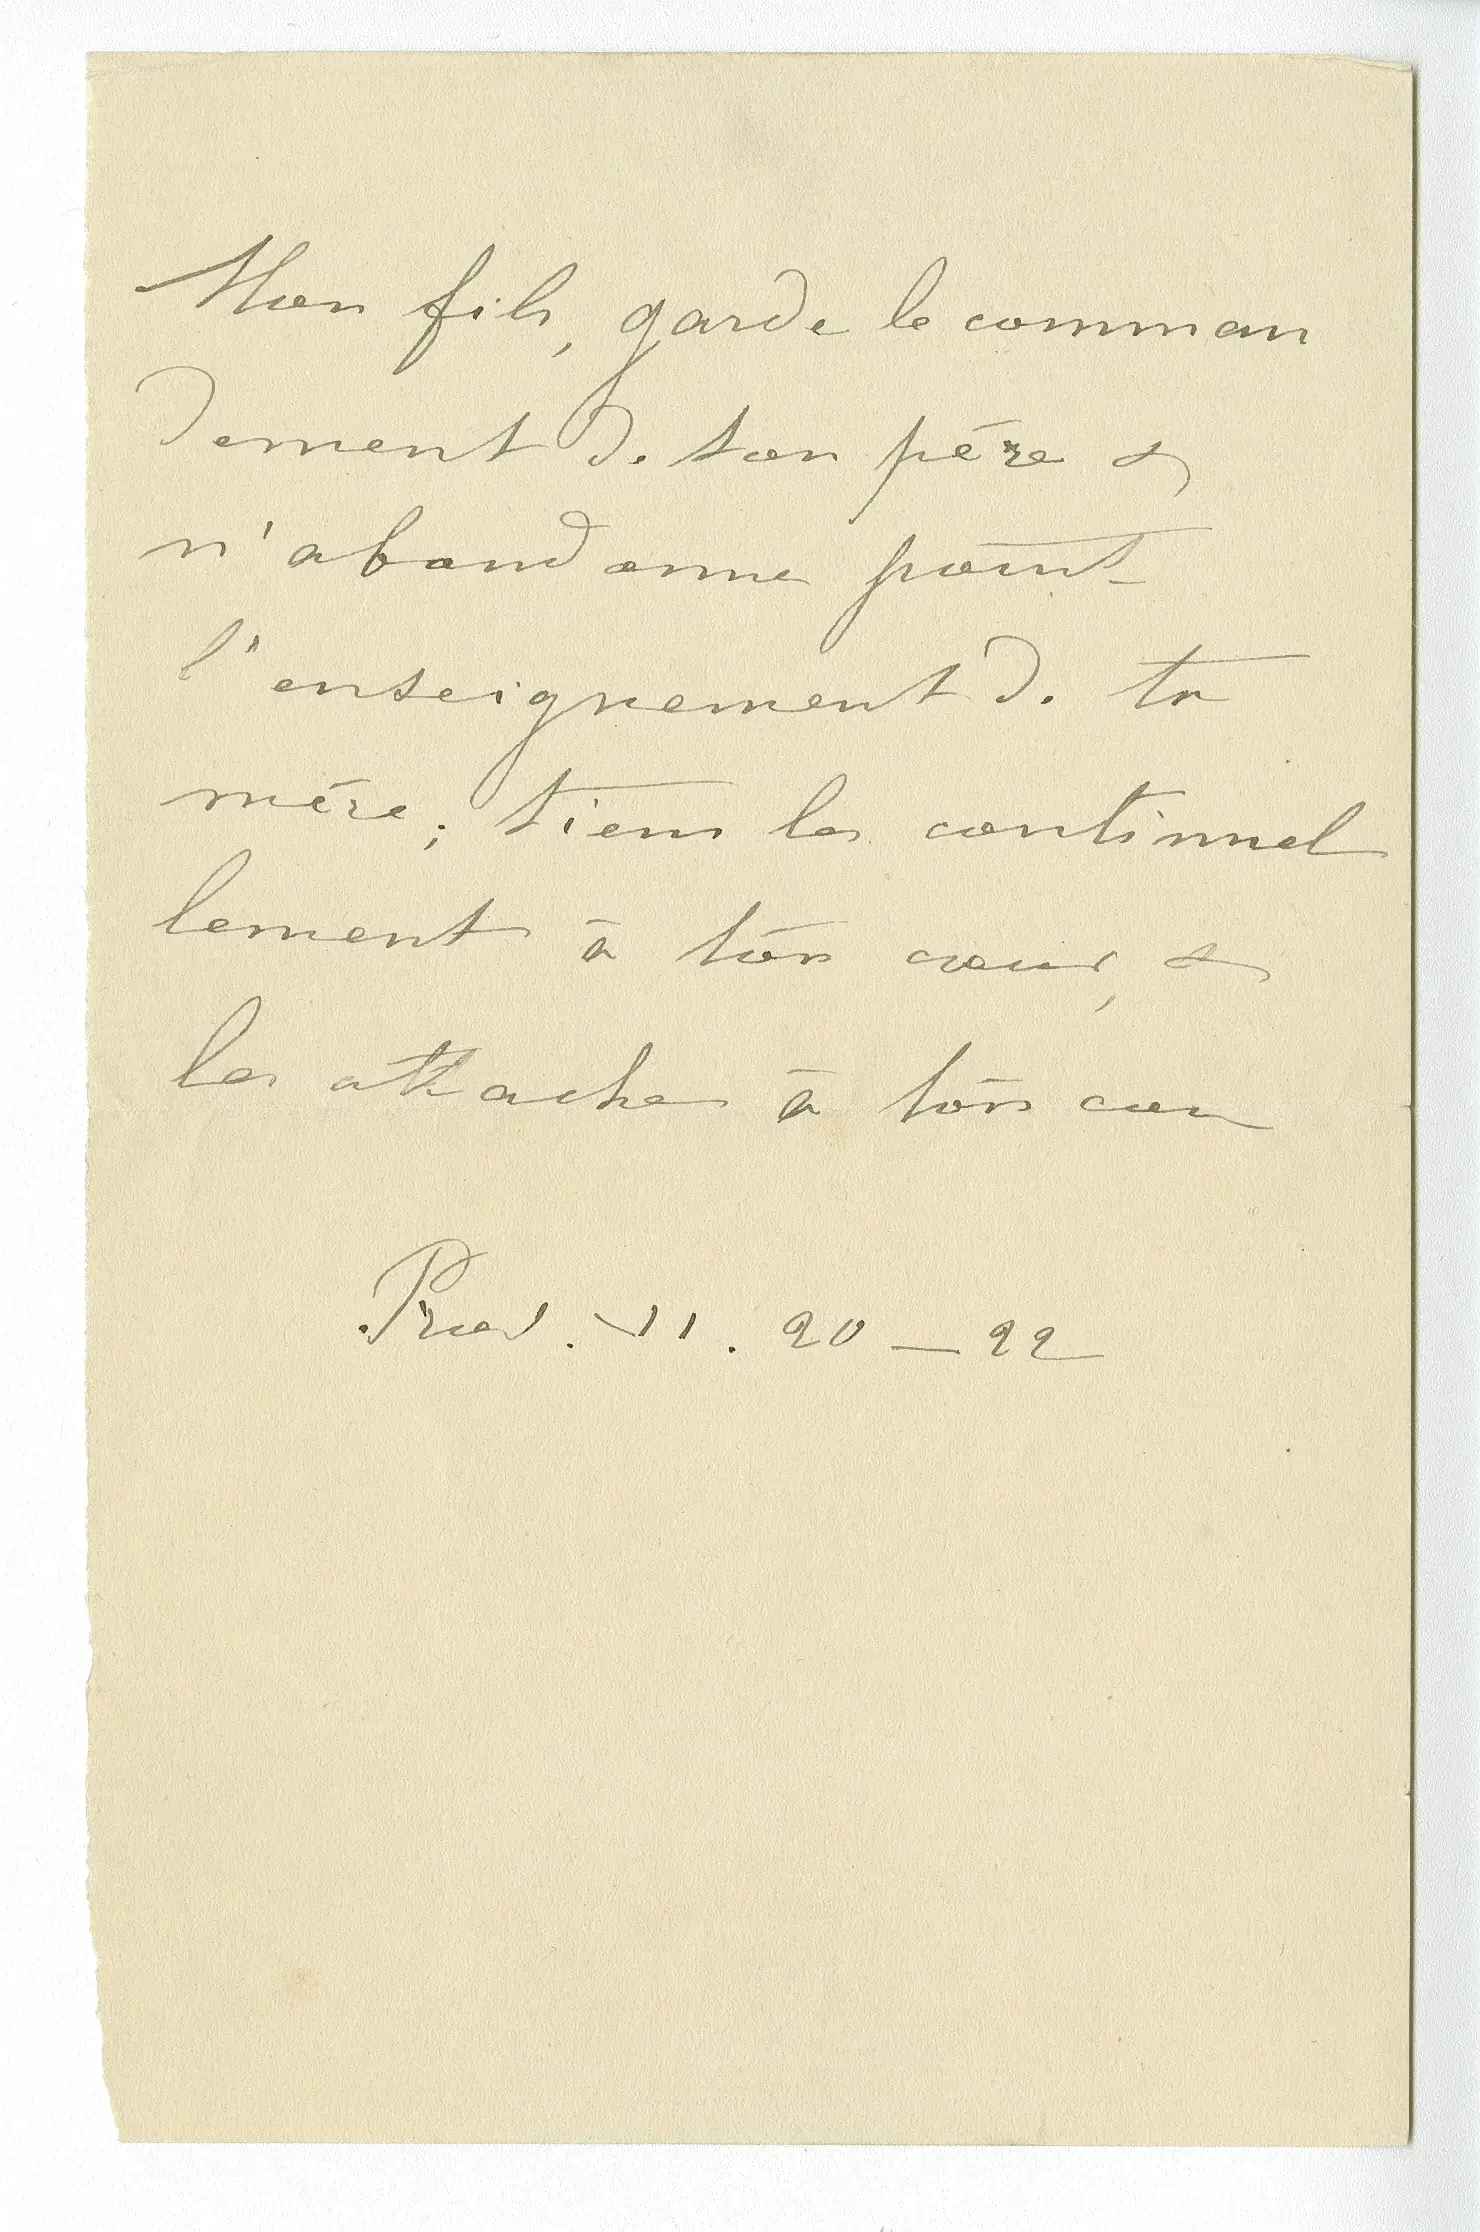 Mon fils, garde le comman
dement de ton père &
n'abandonne point
l'enseignement de ta
mère; tiens les continuel
lement à ton cœur, &
les attache à ton cou
Prov. VI. 20 — 22